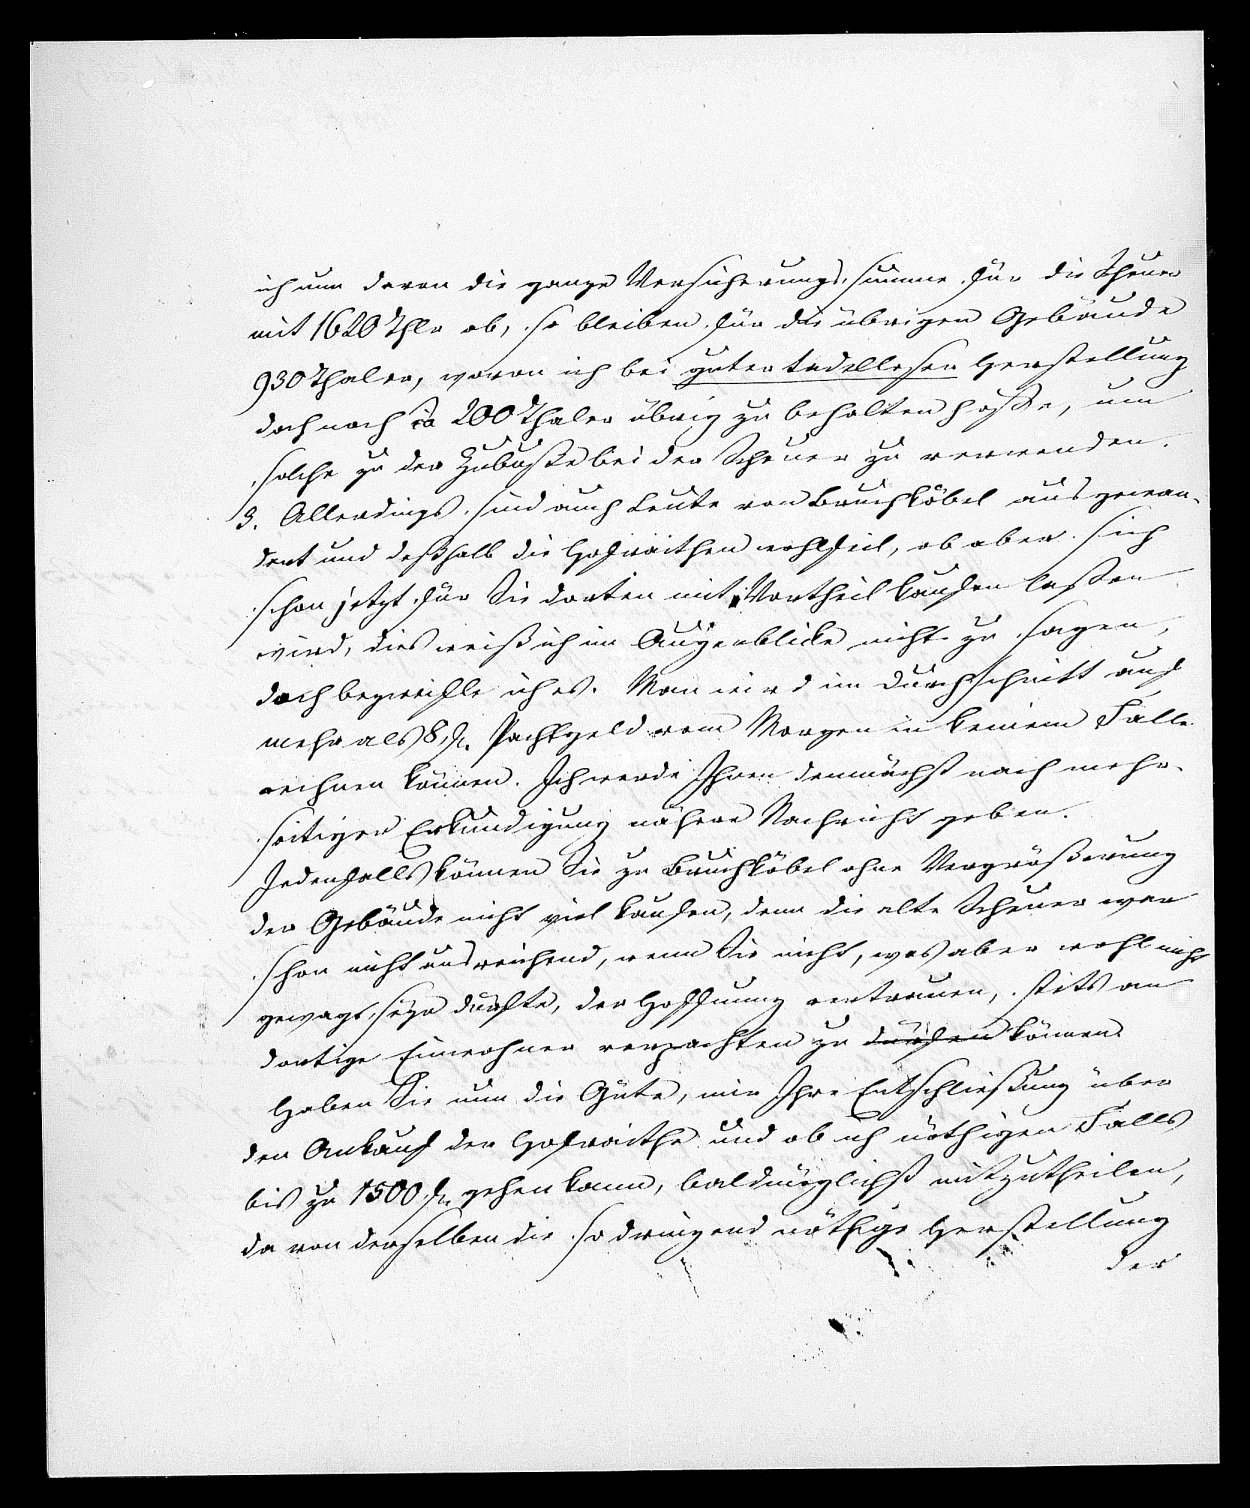 ich nun davon die ganze Versicherungssumme für die Scheuer
mit 1620 Thlr ab, so bleiben für die übrigen Gebäude
930 Thaler, wovon ich bei guter tadelloser Herstellung
doch noch ca 200 Thaler übrig zu behalten hoffe, um
solche zu der Zubuße bei der Scheuer zu verwenden.
3. Allerdings sind auch Leute von Bruchköbel ausgewan-
dert und deßhalb die Hofraithen wohlfeil, ob aber sich
schon jetzt für Sie dorten mit Vortheil kaufen laßen
wird, dies weiß ich im Augenblicke nicht zu sagen,
doch bezweifle ich es. Man wird im Durchschnitt auf
mehr als 8 fl. Pachtgeld vom Morgen in keinem Falle
rechnen können. Ich werde Ihnen demnächst nach mehr-
seitiger Erkundigung nähere Nachricht geben.
Jedenfalls können Sie zu Bruchköbel ohne Vergrößerung
der Gebäude nicht viel kaufen, denn die alte Scheuer war
schon nicht ausreichend, wenn Sie nicht, was aber wohl nicht
gewagt seyn dürfte, der Hoffnung vertrauen, stets an
dortige Einwohner verpachten zu dürfen können
Haben Sie nun die Güte, mir Ihre Entschließung über
den Ankauf der Hofraithe und ob ich nöthigen Falls
bis zu 1500 fl. gehen kann, baldmöglichst mitzutheilen,
da von derselben die so dringend nöthige Herstellung
der